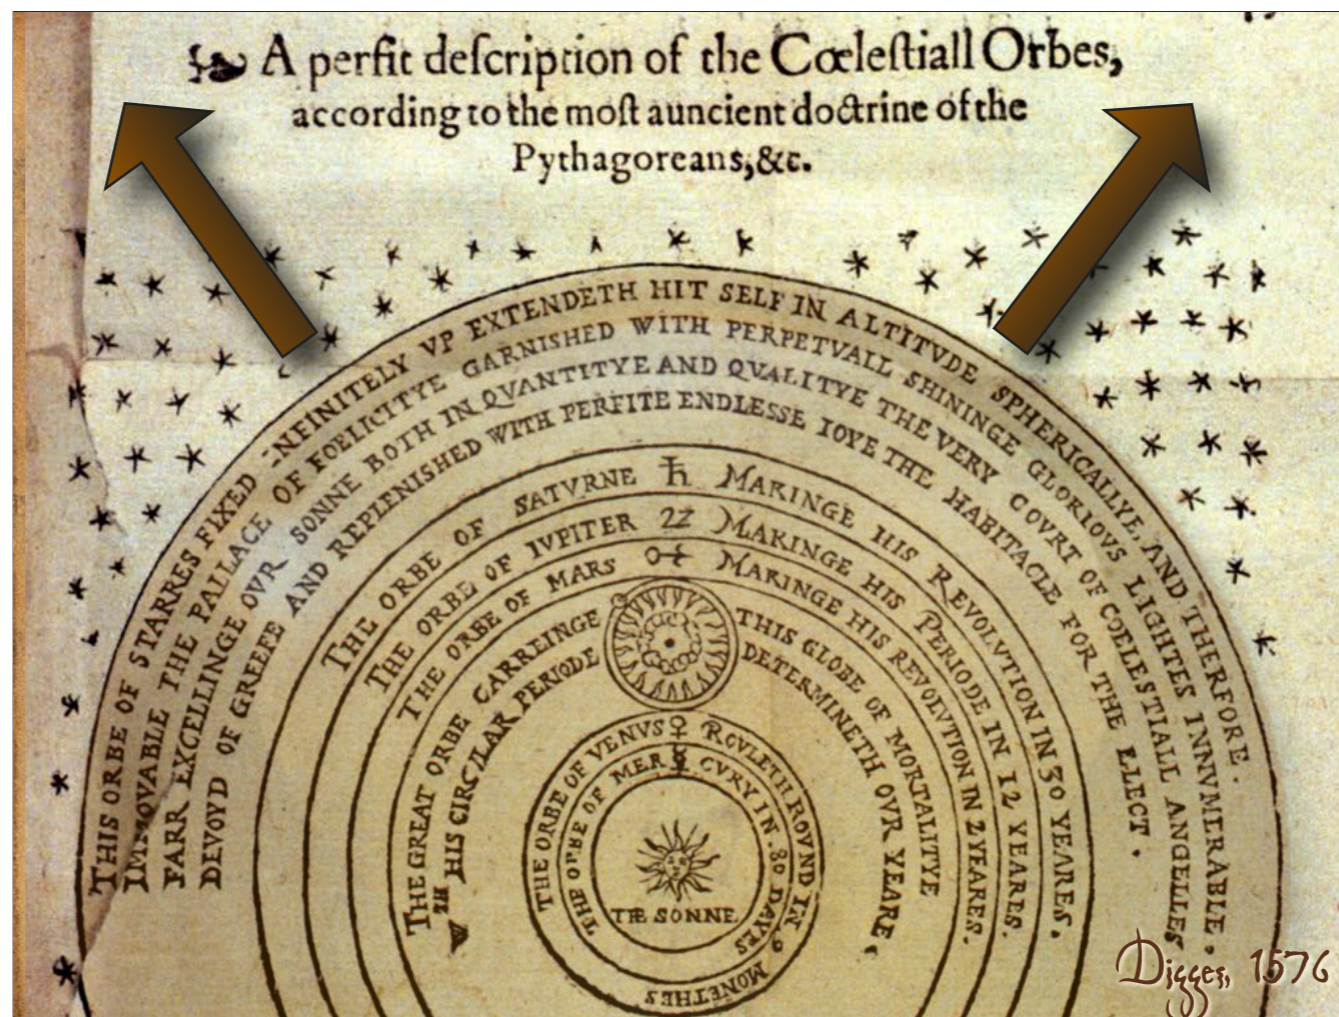 A perfit deſcription of the Cœleſtiall Orbes,
according to the moſt auncient doctrine of the
Pythagoreans,&c.
THIS ORBE OF STARRES FIXED INFINITELY VP EXTENDETH HIT SELF IN ALTITVDE SPHERICALLYE, AND THERFORE.
IMMOVABLE THE PALLACE OF FOELICITYE GARNISHED WITH PERPETVALL SHININGE GLORIOVS LIGHTES INNVMERABLE.
FARR EXCELLINGE OVR SONNE BOTH IN QVANTITYE AND QVALITYE THE VERY COVRT OF COELESTIALL ANGELLES
DEVOYD OF GREEFE AND REPLENISHED WITH PERFITE ENDLESSE IOYE THE HABITACLE FOR THE ELECT.
THE ORBE OF SATVRNE ♄ MAKINGE HIS REVOLVTION IN 30 YEARES.
THE ORBE OF IVPITER ♃ MAKINGE HIS PERIODE IN 12 YEARES.
THE ORBE OF MARS ♂ MAKINGE HIS REVOLVTION IN 2 YEARES.
THE GREAT ORBE CARREINGE THIS GLOBE OF MORTALITYE
HIS CIRCVLAR PERIODE DETERMINETH OVR YEARE.
THE ORBE OF VENVS ♀ ROVLETH ROVND IN 9 MONETHES
THE ORBE OF MER ☿ CVRY IN 80 DAYES
THE SONNE
Digges, 1576